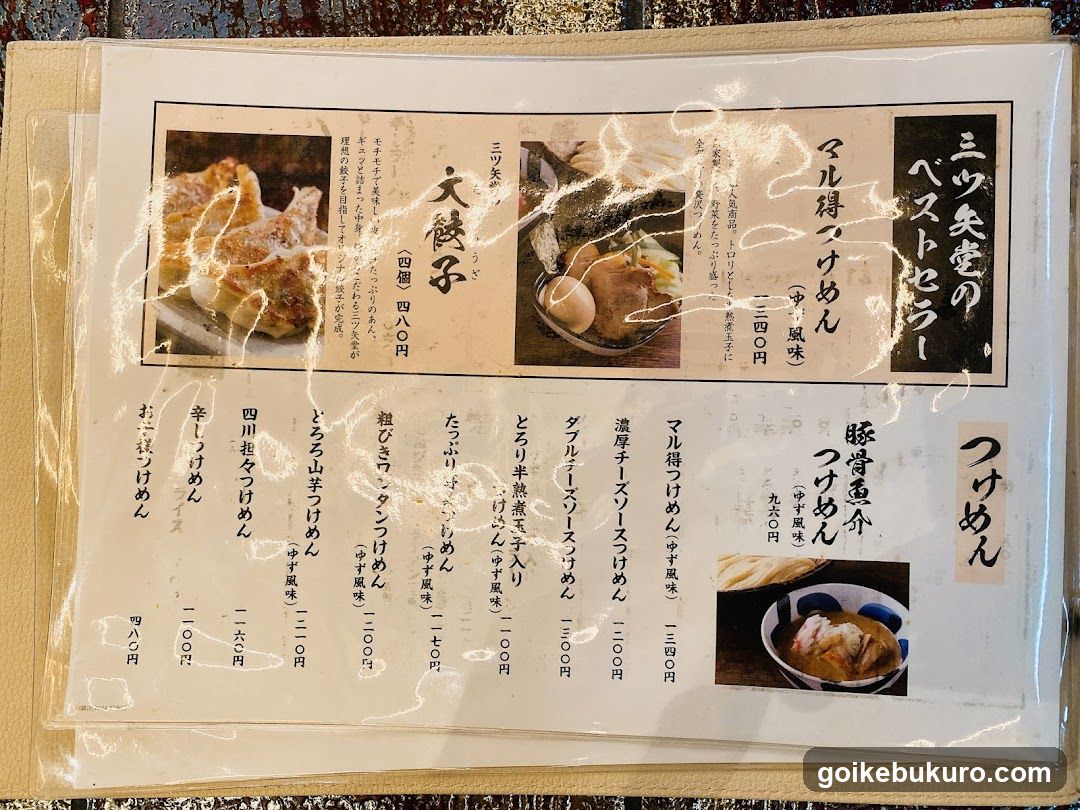 三ツ矢堂の
ベストセラー
マル得つけめん
（ゆず風味）
一三四〇円
人気商品。トロリとした半熟煮玉子に
野菜をたっぷり盛った
つけめん。
三ツ矢堂
大餃子
（四個）四八〇円
モチモチで美味しい皮
たっぷりのあん、
ギュッと詰まった中身
こだわる三ツ矢堂が
理想の餃子を目指してオリジナル餃子が完成。
つけめん
豚骨魚介
つけめん
（ゆず風味）
九六〇円
マル得つけめん（ゆず風味） 一三四〇円
濃厚チーズソースつけめん 一二〇〇円
ダブルチーズソースつけめん 一三〇〇円
とろり半熟煮玉子入り
つけめん（ゆず風味） 一一〇〇円
たっぷり野菜つけめん
（ゆず風味） 一一七〇円
粗びきワンタンつけめん
（ゆず風味） 一二〇〇円
とろろ山芋つけめん
（ゆず風味） 一二一〇円
四川担々つけめん 一一六〇円
辛しつけめん 一一〇〇円
お子様つけめん 四八〇円
goikebukuro.com